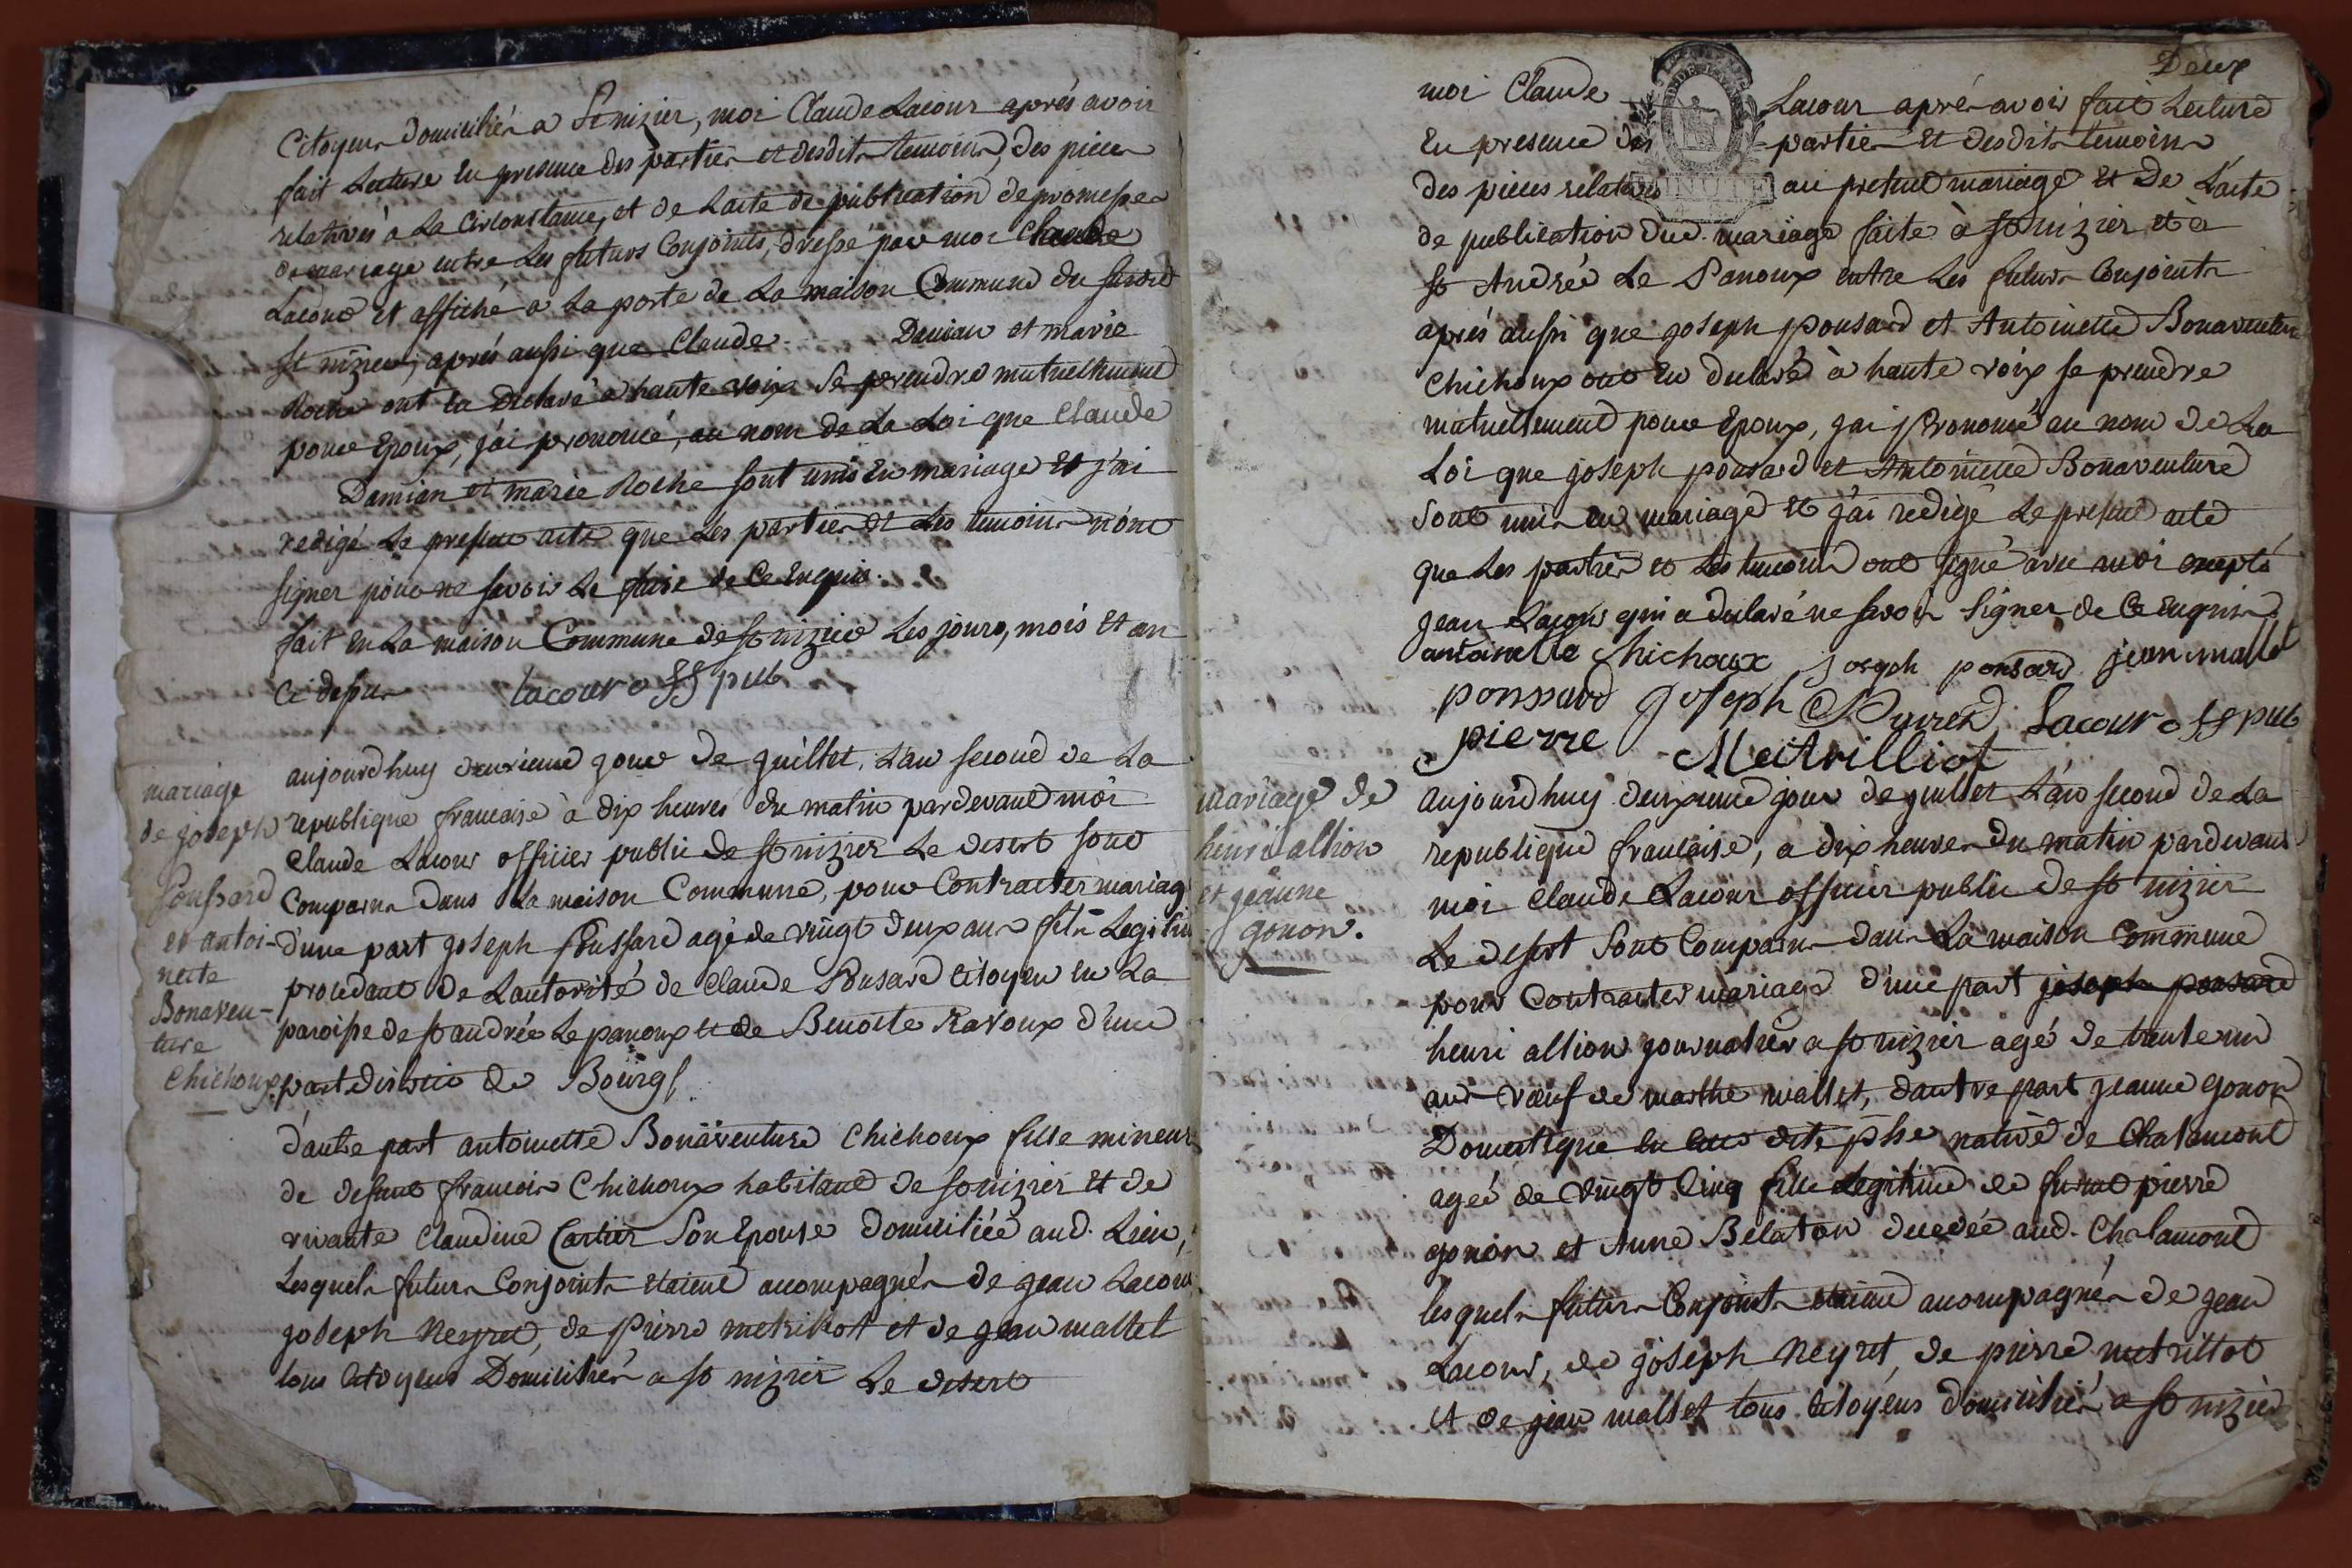 Citoyens domiciliés a St nizier, moi Claude Lacour aprés avoir
fait Lecture en presence des parties et desdits temoins, des pieces
relatives à La Circonstance, et de Lacte de publication de promesses
de mariage entre Les futurs Conjoints, dressé par moi Claude
Lacour et affiché a La porte de La maison Commune du susdit
St nizier, aprés aussi que Claude Damian et marie
Roche ont eu declaré a haute voix Se prendre mutuellement
pour Epoux, j'ai prononcé, au nom de La Loi que Claude
Damian et marie Roche sont unis En mariage Et j'ai
redigé Le present acte que Les parties et Les temoins n'ont
signer pour ne savoir Le faire de Ce Enquis.
fait En La maison Commune de St nizier Les jours, mois Et an
Ci dessus lacour off pub
mariage
de joseph
Poussard
et antoi-
nette
Bonaven-
ture
Chichoux
aujourdhuy deuxieme jour de juillet, L'an second de La
republique francaise à dix heures du matin pardevant moi
Claude Lacour officier public de St nizier Le desert sont
Comparus dans La maison Commune, pour Contracter mariag
d'une part joseph Poussard agé de vingt deux ans fils Legitim
procedant de Lautorité de Claude Ponsard Citoyen en La
paroisse de St andrée Le panoux et de Benoite Ravoux d'une
part district de Bourg
d'autre part antoinette Bonaventure Chichoux fille mineur
de defunt francois Chichoux habitant de St nizier Et de
vivante Claudine Cartier Son Epouse domiciliée aud. Lieu,
Lesquels futurs Conjoints etaient accompagnés de jean Lacour
joseph Neyret, de Pierre metrillot et de jean mallet
tous Citoyens Domiciliés a St nizier Le desert
Deux
moi Claude Lacour aprés avoir fait Lecture
En presence des parties Et desdits temoins
des pieces relatives au present mariage Et de L'acte
de publication dud. mariage faite à St nizier et à
St Andrée Le Panoux entre Les futurs Conjoints
aprés aussi que joseph ponsard et Antoinette Bonaventure
Chichoux ont Eu declaré à haute voix se prendre
mutuellement pour Epoux, j'ai prononcé au nom de La
Loi que joseph ponsard et Antoinette Bonaventure
Sont unis en mariage Et j'ai redigé Le present acte
que Les parties et Les temoins ont signé avec moi excepté
jean Lacour qui a declaré ne savoir Signer de Ce Enquis.
antoinette Chichoux joseph ponsard jean mallet
ponssard joseph Neyret Lacour off pub
pierre Meitrilliot
mariage de
henri allion
et jeanne
gonon.
aujourdhuy deuxieme jour de juillet L'an second de La
republique francaise, a dix heures du matin pardevant
moi Claude Lacour officier public de St nizier
Le desert Sont Comparus dans La maison Commune
pour Contracter mariage d'une part joseph ponsard
henri allion journalier a St nizier agé de trente un
ans veuf de marthe mallet, dautre part jeanne gonon
Domestique en dite psse native de Chalamont
ageé de vingt Cinq fille Legitime de pierre
gonon et Anne Belaton decedée aud. Chalamont
lesquels futurs Conjoints etaient accompagnés de jean
Lacour, de joseph Neyret, de pierre metrillot
Et de jean mallet tous Citoyens domiciliés a St nizier